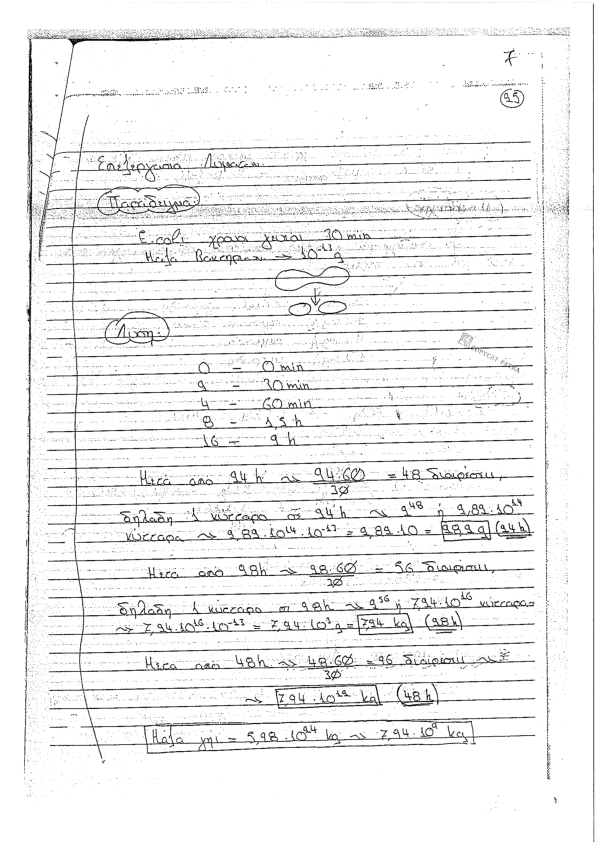 7
25
Επεξεργασια Λυματων.
Παράδειγμα
E.coli: χρονο γενιαι 30 min
Μάζα Βακτηριου → 10⁻¹³ g
Λυση:
0 - 0 min
2 - 30 min
4 - 60 min
8 - 1,5 h
16 - 2 h
Μετά από 24 h ~> 24·60/30 = 48 διαιρέσεις,
δηλαδη 1 κύτταρο σε 24h ~> 2⁴⁸ ή 2,82·10¹⁴
κύτταρα ~> 2,82·10¹⁴·10⁻¹³ = 2,82·10 = 28,2 g (24h)
Μετά από 28h ~> 28·60/30 = 56 διαιρέσεις,
δηλαδη 1 κύτταρο σε 28h ~> 2⁵⁶ ή 7,24·10¹⁶ κύτταρα
~> 7,24·10¹⁶·10⁻¹³ = 7,24·10³ g = 7,24 kg (28h)
Μετά από 48h ~> 48·60/30 = 96 διαιρέσεις ~>
~> 7,24·10¹² kg (48h)
Μάζα γης = 5,98·10²⁴ kg ~> 7,24·10⁹ kg
COPYCAT PATRA